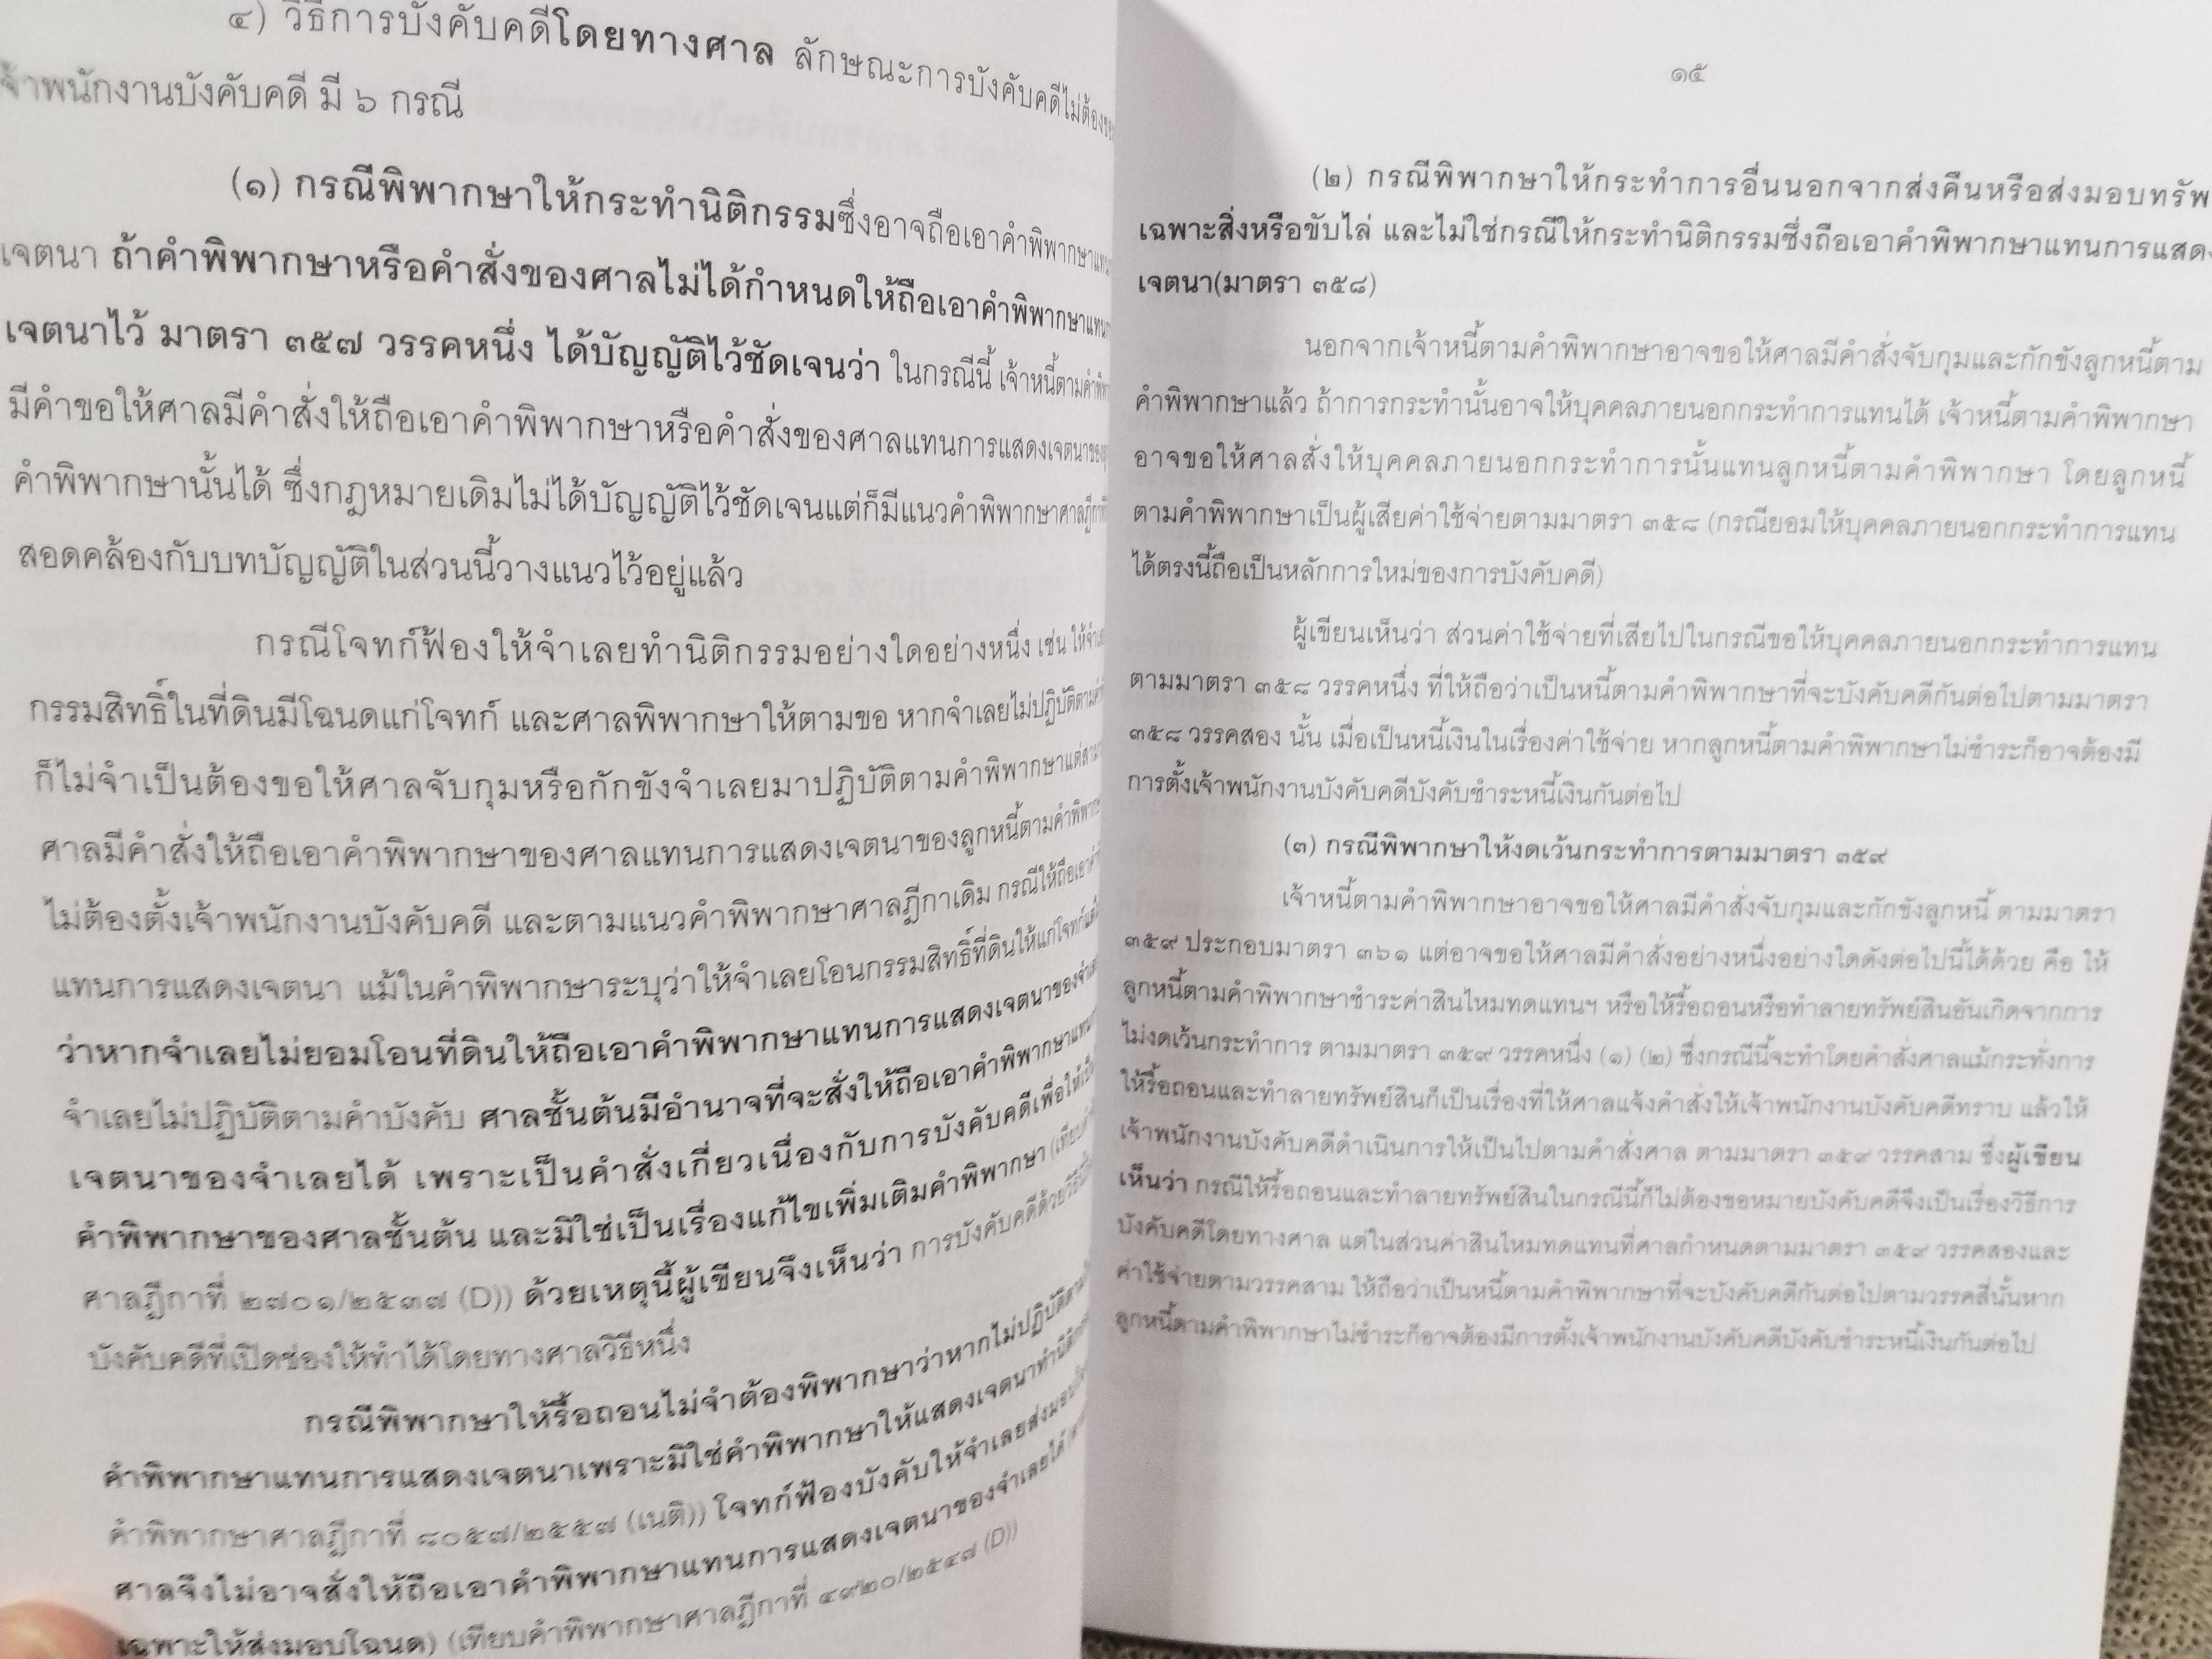 ๔) วิธีการบังคับคดีโดยทางศาล ลักษณะการบังคับคดีไม่ต้อง
เจ้าพนักงานบังคับคดี มี ๖ กรณี
(๑) กรณีพิพากษาให้กระทำนิติกรรมซึ่งอาจถือเอาคำพิพากษา
เจตนา ถ้าคำพิพากษาหรือคำสั่งของศาลไม่ได้กำหนดให้ถือเอาคำพิพากษา
เจตนาไว้ มาตรา ๓๕๗ วรรคหนึ่ง ได้บัญญัติไว้ชัดเจนว่า ในกรณีนี้ เจ้าหนี้ตาม
มีคำขอให้ศาลมีคำสั่งให้ถือเอาคำพิพากษาหรือคำสั่งของศาลแทนการแสดงเจตนา
คำพิพากษานั้นได้ ซึ่งกฎหมายเดิมไม่ได้บัญญัติไว้ชัดเจนแต่ก็มีแนวคำพิพากษาศาลฎีกา
สอดคล้องกับบทบัญญัติในส่วนนี้วางแนวไว้อยู่แล้ว
กรณีโจทก์ฟ้องให้จำเลยทำนิติกรรมอย่างใดอย่างหนึ่ง เช่น
กรรมสิทธิ์ในที่ดินมีโฉนดแก่โจทก์ และศาลพิพากษาให้ตามขอ หากจำเลยไม่ปฏิบัติ
ก็ไม่จำเป็นต้องขอให้ศาลจับกุมหรือกักขังจำเลยมาปฏิบัติตามคำพิพากษา
ศาลมีคำสั่งให้ถือเอาคำพิพากษาของศาลแทนการแสดงเจตนาของลูกหนี้ตาม
ไม่ต้องตั้งเจ้าพนักงานบังคับคดี และตามแนวคำพิพากษาศาลฎีกาเดิม กรณีให้ถือเอา
แทนการแสดงเจตนา แม้ในคำพิพากษาระบุว่าให้จำเลยโอนกรรมสิทธิ์ที่ดินให้แก่โจทก์
ว่าหากจำเลยไม่ยอมโอนที่ดินให้ถือเอาคำพิพากษาแทนการแสดงเจตนาของ
จำเลยไม่ปฏิบัติตามคำบังคับ ศาลชั้นต้นมีอำนาจที่จะสั่งให้ถือเอาคำพิพากษา
เจตนาของจำเลยได้ เพราะเป็นคำสั่งเกี่ยวเนื่องกับการบังคับคดีเพื่อให้
คำพิพากษาของศาลชั้นต้น และมิใช่เป็นเรื่องแก้ไขเพิ่มเติมคำพิพากษา
ศาลฎีกาที่ ๒๗๐๑/๒๕๓๗ (D)) ด้วยเหตุนี้ผู้เขียนจึงเห็นว่า การบังคับคดีด้วย
บังคับคดีที่เปิดช่องให้ทำได้โดยทางศาลวิธีหนึ่ง
กรณีพิพากษาให้รื้อถอนไม่จำต้องพิพากษาว่าหากไม่ปฏิบัติ
คำพิพากษาแทนการแสดงเจตนาเพราะมิใช่คำพิพากษาให้แสดงเจตนา
คำพิพากษาศาลฎีกาที่ ๘๐๕๗/๒๕๕๗ (เนติ)) โจทก์ฟ้องบังคับให้จำเลยส่งมอบ
ศาลจึงไม่อาจสั่งให้ถือเอาคำพิพากษาแทนการแสดงเจตนาของจำเลยได้
เฉพาะให้ส่งมอบโฉนด) (เทียบคำพิพากษาศาลฎีกาที่ ๔๙๒๐/๒๕๔๗ (D))
๑๕
(๒) กรณีพิพากษาให้กระทำการอื่นนอกจากส่งคืนหรือส่งมอบทรัพ
เฉพาะสิ่งหรือขับไล่ และไม่ใช่กรณีให้กระทำนิติกรรมซึ่งถือเอาคำพิพากษาแทนการแสดง
เจตนา(มาตรา ๓๕๘)
นอกจากเจ้าหนี้ตามคำพิพากษาอาจขอให้ศาลมีคำสั่งจับกุมและกักขังลูกหนี้ตาม
คำพิพากษาแล้ว ถ้าการกระทำนั้นอาจให้บุคคลภายนอกกระทำการแทนได้ เจ้าหนี้ตามคำพิพากษา
อาจขอให้ศาลสั่งให้บุคคลภายนอกกระทำการนั้นแทนลูกหนี้ตามคำพิพากษา โดยลูกหนี้
ตามคำพิพากษาเป็นผู้เสียค่าใช้จ่ายตามมาตรา ๓๕๘ (กรณียอมให้บุคคลภายนอกกระทำการแทน
ได้ตรงนี้ถือเป็นหลักการใหม่ของการบังคับคดี)
ผู้เขียนเห็นว่า ส่วนค่าใช้จ่ายที่เสียไปในกรณีขอให้บุคคลภายนอกกระทำการแทน
ตามมาตรา ๓๕๘ วรรคหนึ่ง ที่ให้ถือว่าเป็นหนี้ตามคำพิพากษาที่จะบังคับคดีกันต่อไปตามมาตรา
๓๕๘ วรรคสอง นั้น เมื่อเป็นหนี้เงินในเรื่องค่าใช้จ่าย หากลูกหนี้ตามคำพิพากษาไม่ชำระก็อาจต้องมี
การตั้งเจ้าพนักงานบังคับคดีบังคับชำระหนี้เงินกันต่อไป
(๓) กรณีพิพากษาให้งดเว้นกระทำการตามมาตรา ๓๕๙
เจ้าหนี้ตามคำพิพากษาอาจขอให้ศาลมีคำสั่งจับกุมและกักขังลูกหนี้ ตามมาตรา
๓๕๙ ประกอบมาตรา ๓๖๑ แต่อาจขอให้ศาลมีคำสั่งอย่างหนึ่งอย่างใดดังต่อไปนี้ได้ด้วย คือ ให้
ลูกหนี้ตามคำพิพากษาชำระค่าสินไหมทดแทนฯ หรือให้รื้อถอนหรือทำลายทรัพย์สินอันเกิดจากการ
ไม่งดเว้นกระทำการ ตามมาตรา ๓๕๙ วรรคหนึ่ง (๑) (๒) ซึ่งกรณีนี้จะทำโดยคำสั่งศาลแม้กระทั่งการ
ให้รื้อถอนและทำลายทรัพย์สินก็เป็นเรื่องที่ให้ศาลแจ้งคำสั่งให้เจ้าพนักงานบังคับคดีทราบ แล้วให้
เจ้าพนักงานบังคับคดีดำเนินการให้เป็นไปตามคำสั่งศาล ตามมาตรา ๓๕๙ วรรคสาม ซึ่งผู้เขียน
เห็นว่า กรณีให้รื้อถอนและทำลายทรัพย์สินในกรณีนี้ก็ไม่ต้องขอหมายบังคับคดีจึงเป็นเรื่องวิธีการ
บังคับคดีโดยทางศาล แต่ในส่วนค่าสินไหมทดแทนที่ศาลกำหนดตามมาตรา ๓๕๙ วรรคสองและ
ค่าใช้จ่ายตามวรรคสาม ให้ถือว่าเป็นหนี้ตามคำพิพากษาที่จะบังคับคดีกันต่อไปตามวรรคสี่นั้นหาก
ลูกหนี้ตามคำพิพากษาไม่ชำระก็อาจต้องมีการตั้งเจ้าพนักงานบังคับคดีบังคับชำระหนี้เงินกันต่อไป